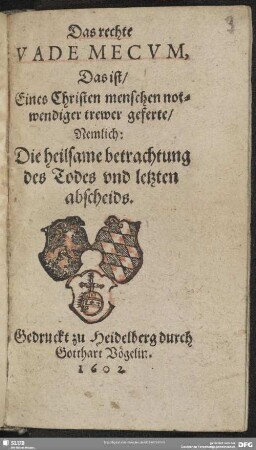 Das rechte
VADE MECVM,
Das ist/
Eines Christen menschen not⸗
wendiger trewer geferte/
Nemlich:
Die heilsame betrachtung
des Todes vnd letzten
abscheids.
Gedruckt zu Heidelberg durch
Gotthart Vögelin.
1602
SLUB
DFG